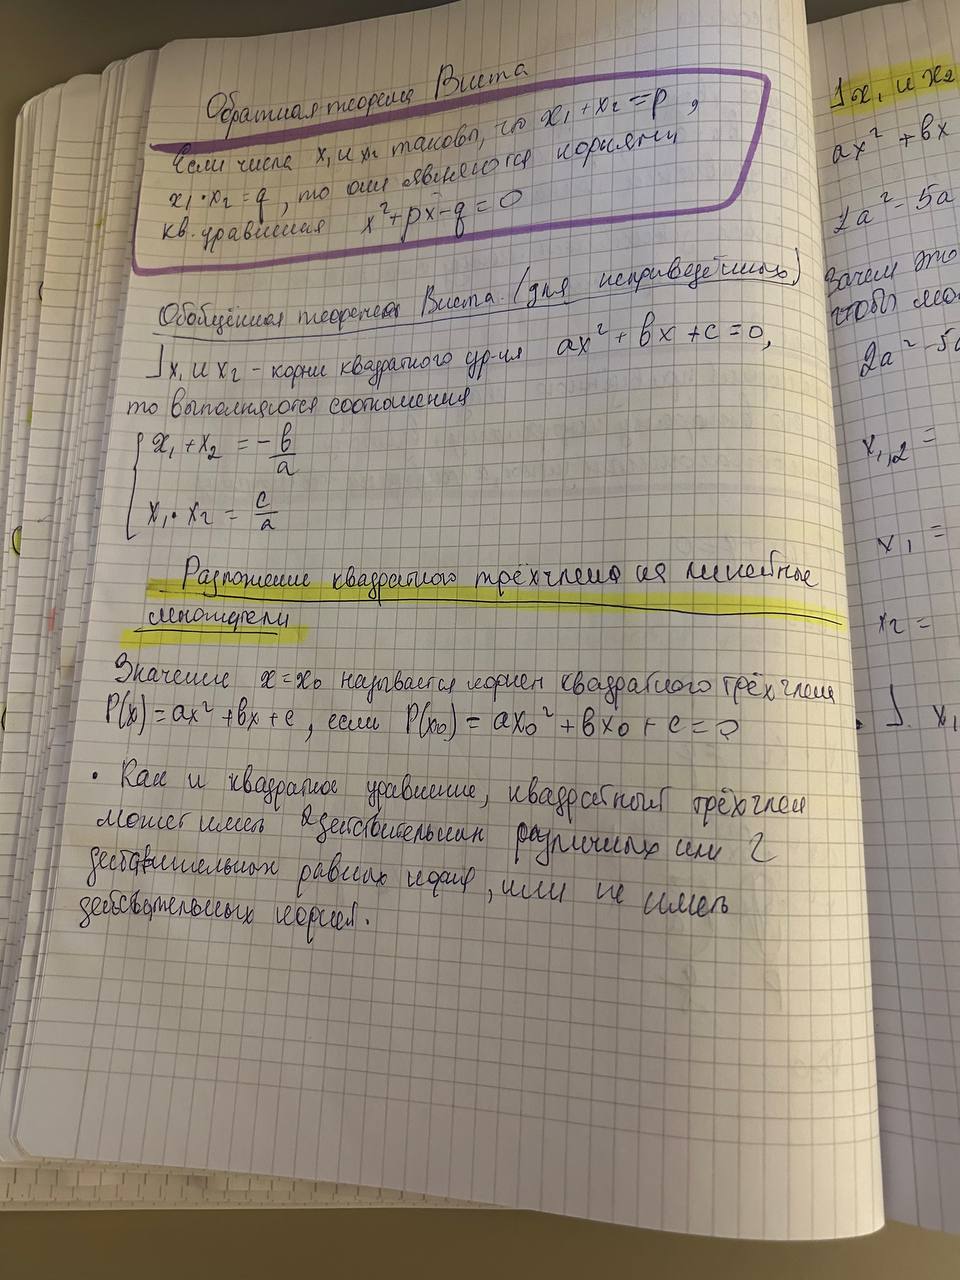 Обратная теорема Виета
Если числа x₁ и x₂ таковы, что x₁ + x₂ = p,
x₁ · x₂ = q, то они являются корнями
кв. уравнения x² + px - q = 0
Обобщённая теорема Виета (для неприведённых)
] x₁ и x₂ - корни квадратного ур-ия ax² + bx + c = 0,
то выполняются соотношения
{ x₁ + x₂ = - b/a
x₁ · x₂ = c/a
Разложение квадратного трёхчлена на линейные
множители
Значение x = x₀ называется корнем квадратного трёхчлена
P(x) = ax² + bx + c, если P(x₀) = ax₀² + bx₀ + c = 0
· Как и квадратное уравнение, квадратный трёхчлен
может иметь 2 действительных различных или 2
действительных равных корня, или не иметь
действительных корней.
] x₁ и x₂
ax² + bx
2a² - 5a
Зачем это
чтобы
2a² - 5a
x₁,₂ =
x₁ =
x₂ =
] x₁